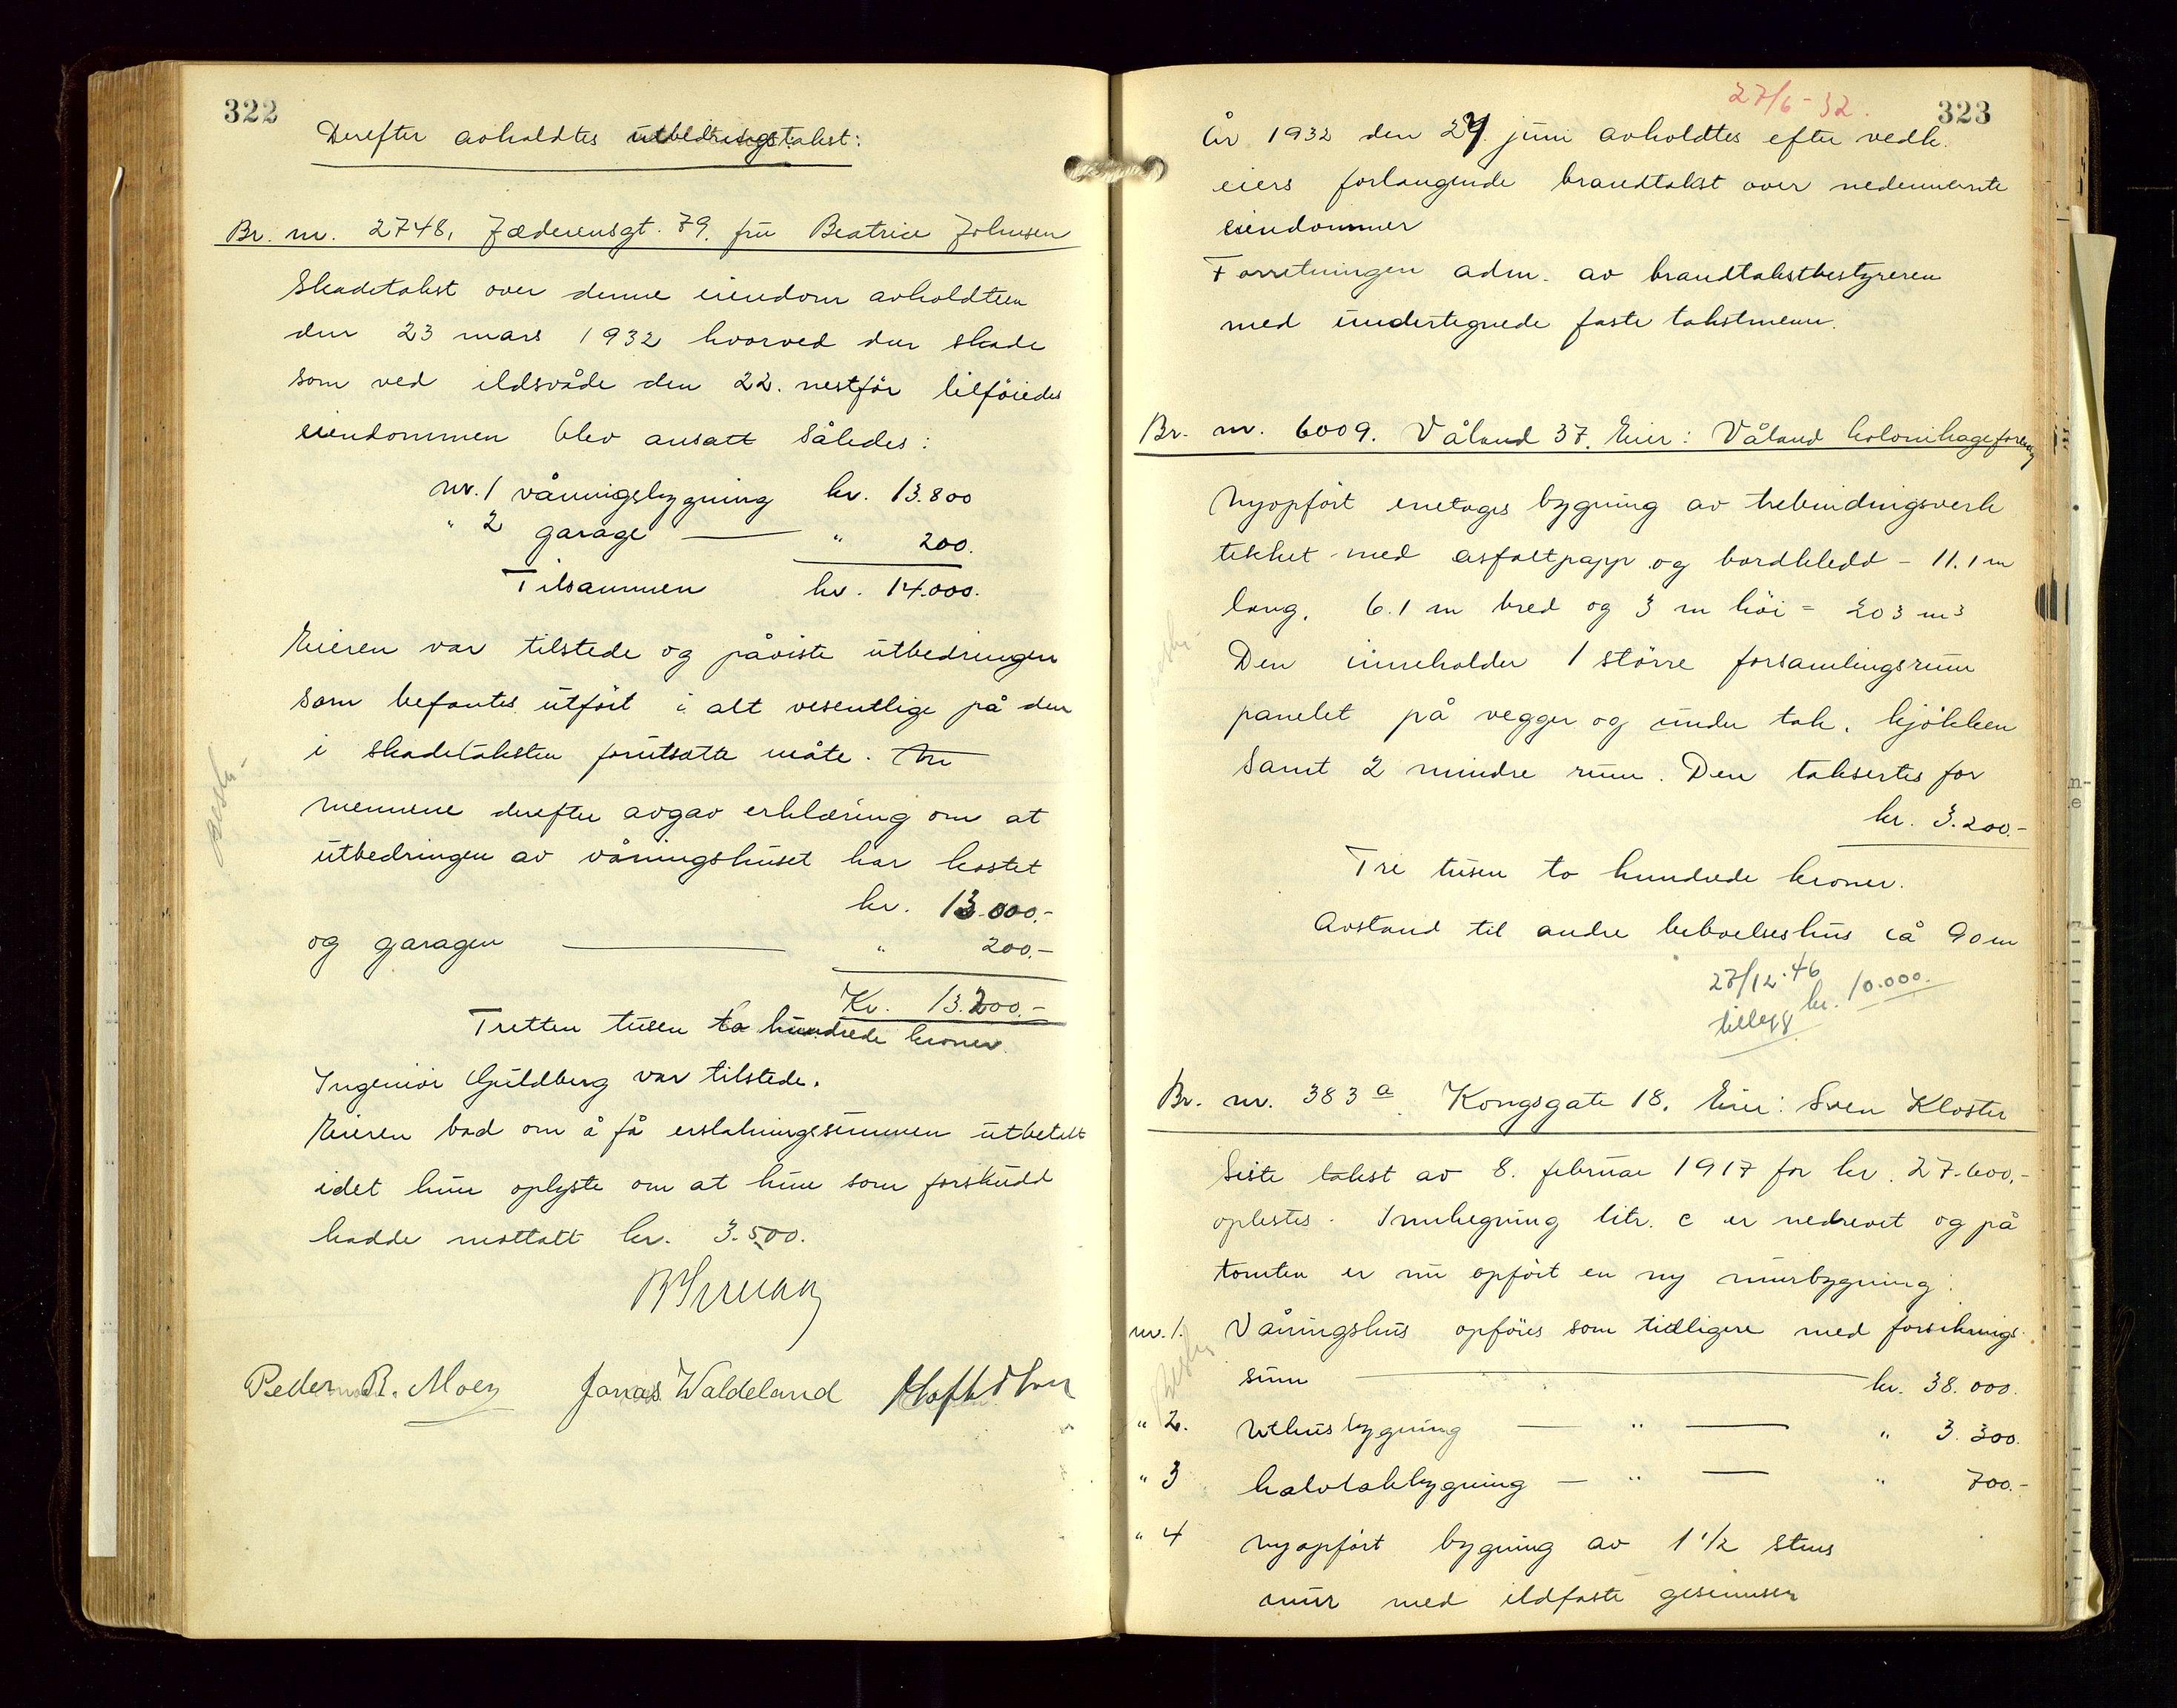 322
Derefter avholdtes utbedringstakst:
Br. nr. 2748, Jæderensgt. 79. fru Beatrice Johnsen
Skadetakst over denne eiendom avholdtes
den 23 mars 1932 hvorved den skade
som ved ildsvåde den 22. nestför tilföiedes
eiendommen blev ansatt således:
nr. 1 våningsbygning kr. 13.800
" 2 garage — " 200.
Tilsammen kr. 14.000.
Eieren var tilstede og påviste utbedringen
som befantes utfört i alt vesentlige på den
i skadetaksten forutsatte måte.
mennene derefter avgav erklæring om at
utbedringen av våningshuset har kostet
kr. 13.000.-
og garagen — " 200.-
Kr. 13.200.-
Tretten tusen to hundrede kroner.
Ingeniör Guldberg var tilstede.
Eieren bad om å få erstatningssummen utbetalt
idet hun oplyste om at hun som forskudd
hadde mottatt kr. 3.500.
Peder R. Moen Jonas Waldeland
27/6-32.
323
År 1932 den 27. juni avholdtes efter vedk.
eiers forlangende brandtakst over nedennevnte
eiendommer
Forretningen adm. av brandtakstbestyreren
med undertegnede faste takstmenn.
Br. nr. 6009. Våland 37. Eier: Våland kolonihageforening
Nyopfört enetages bygning av trebindingsverk
tekket med asfaltpapp og bordkledd - 11.1 m
lang, 6.1 m bred og 3 m höi = 203 m3
Den inneholder 1 större forsamlingsrum
panelet på vegger og under tak, kjökken
samt 2 mindre rum. Den takseres for
kr. 3.200.-
Tre tusen to hundrede kroner.
Avstand til andre beboelseshus ca 90m
27/12.46
tillegg kr. 10.000.
Br. nr. 383 a. Kongsgate 18. Eier: Sven Kloster
Siste takst av 8. februar 1917 for kr. 27.600.-
oplestes. Innbegning litr. c er nedrevet og på
tomten er nu opfört en ny murbygning.
nr. 1. Våningshus opföres som tidligere med forsikrings-
sum — kr. 38.000.
" 2. Uthusbygning — " — " 3.300.
" 3 halvtakbygning — " — " 700.-
" 4 nyopfört bygning av 1 1/2 stens
mur med ildfaste gesimser